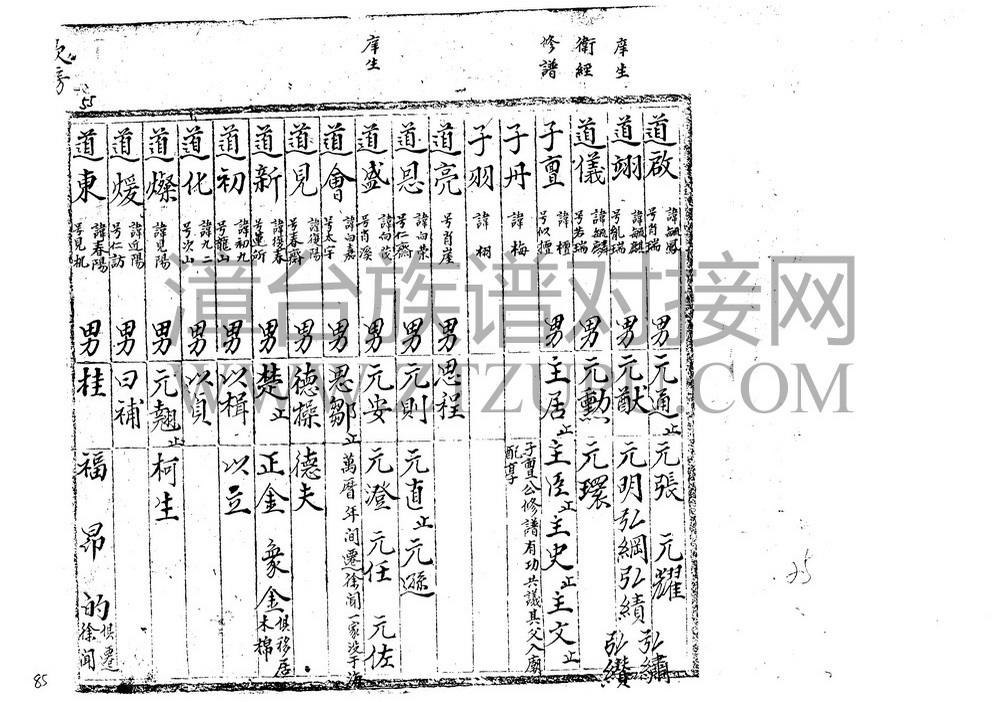 庠生
道啟 諱毓鳳 号肖瑞 男 元通止 元張 元耀
道翊 諱毓麒 号能瑞 男 元猷 元明 弘綱 弘績 弘繡 弘纘
衛經
道儀 諱毓麟 号若瑞 男 元勲 元環
修譜
子亶 諱檀 号似檀 男 主居止 主臣止 主史止 主文止
子亶公修譜有功共議其父入廟配享
子丹 諱梅
子羽 諱栩
道亮 号肖崖 男 思程
道思 諱向榮 号仁齋 男 元則 元直止 元遜
庠生
道盛 諱向茂 号肖溪 男 元安 元澄 元任 元佐
道會 諱向嘉 号太宇 男 思鄒止 萬曆年间遷徐闻一家没于海
道見 諱復陽 号春齋 男 德操 德夫
道新 諱復春 号蓮所 男 楚止 正金 衆金 俱移居木棉
道初 諱初九 号龍山 男 以楫 以立
道化 諱九二 号次山 男 以貞
道燦 諱見陽 男 元翹止 柯生
道煖 諱近陽 号仁訪 男 日補
道東 諱春陽 号見机 男 桂 福 昂 的 俱遷徐闻
次房
55
85
25
漳台族谱对接网
WWW.ZTZUPU.COM